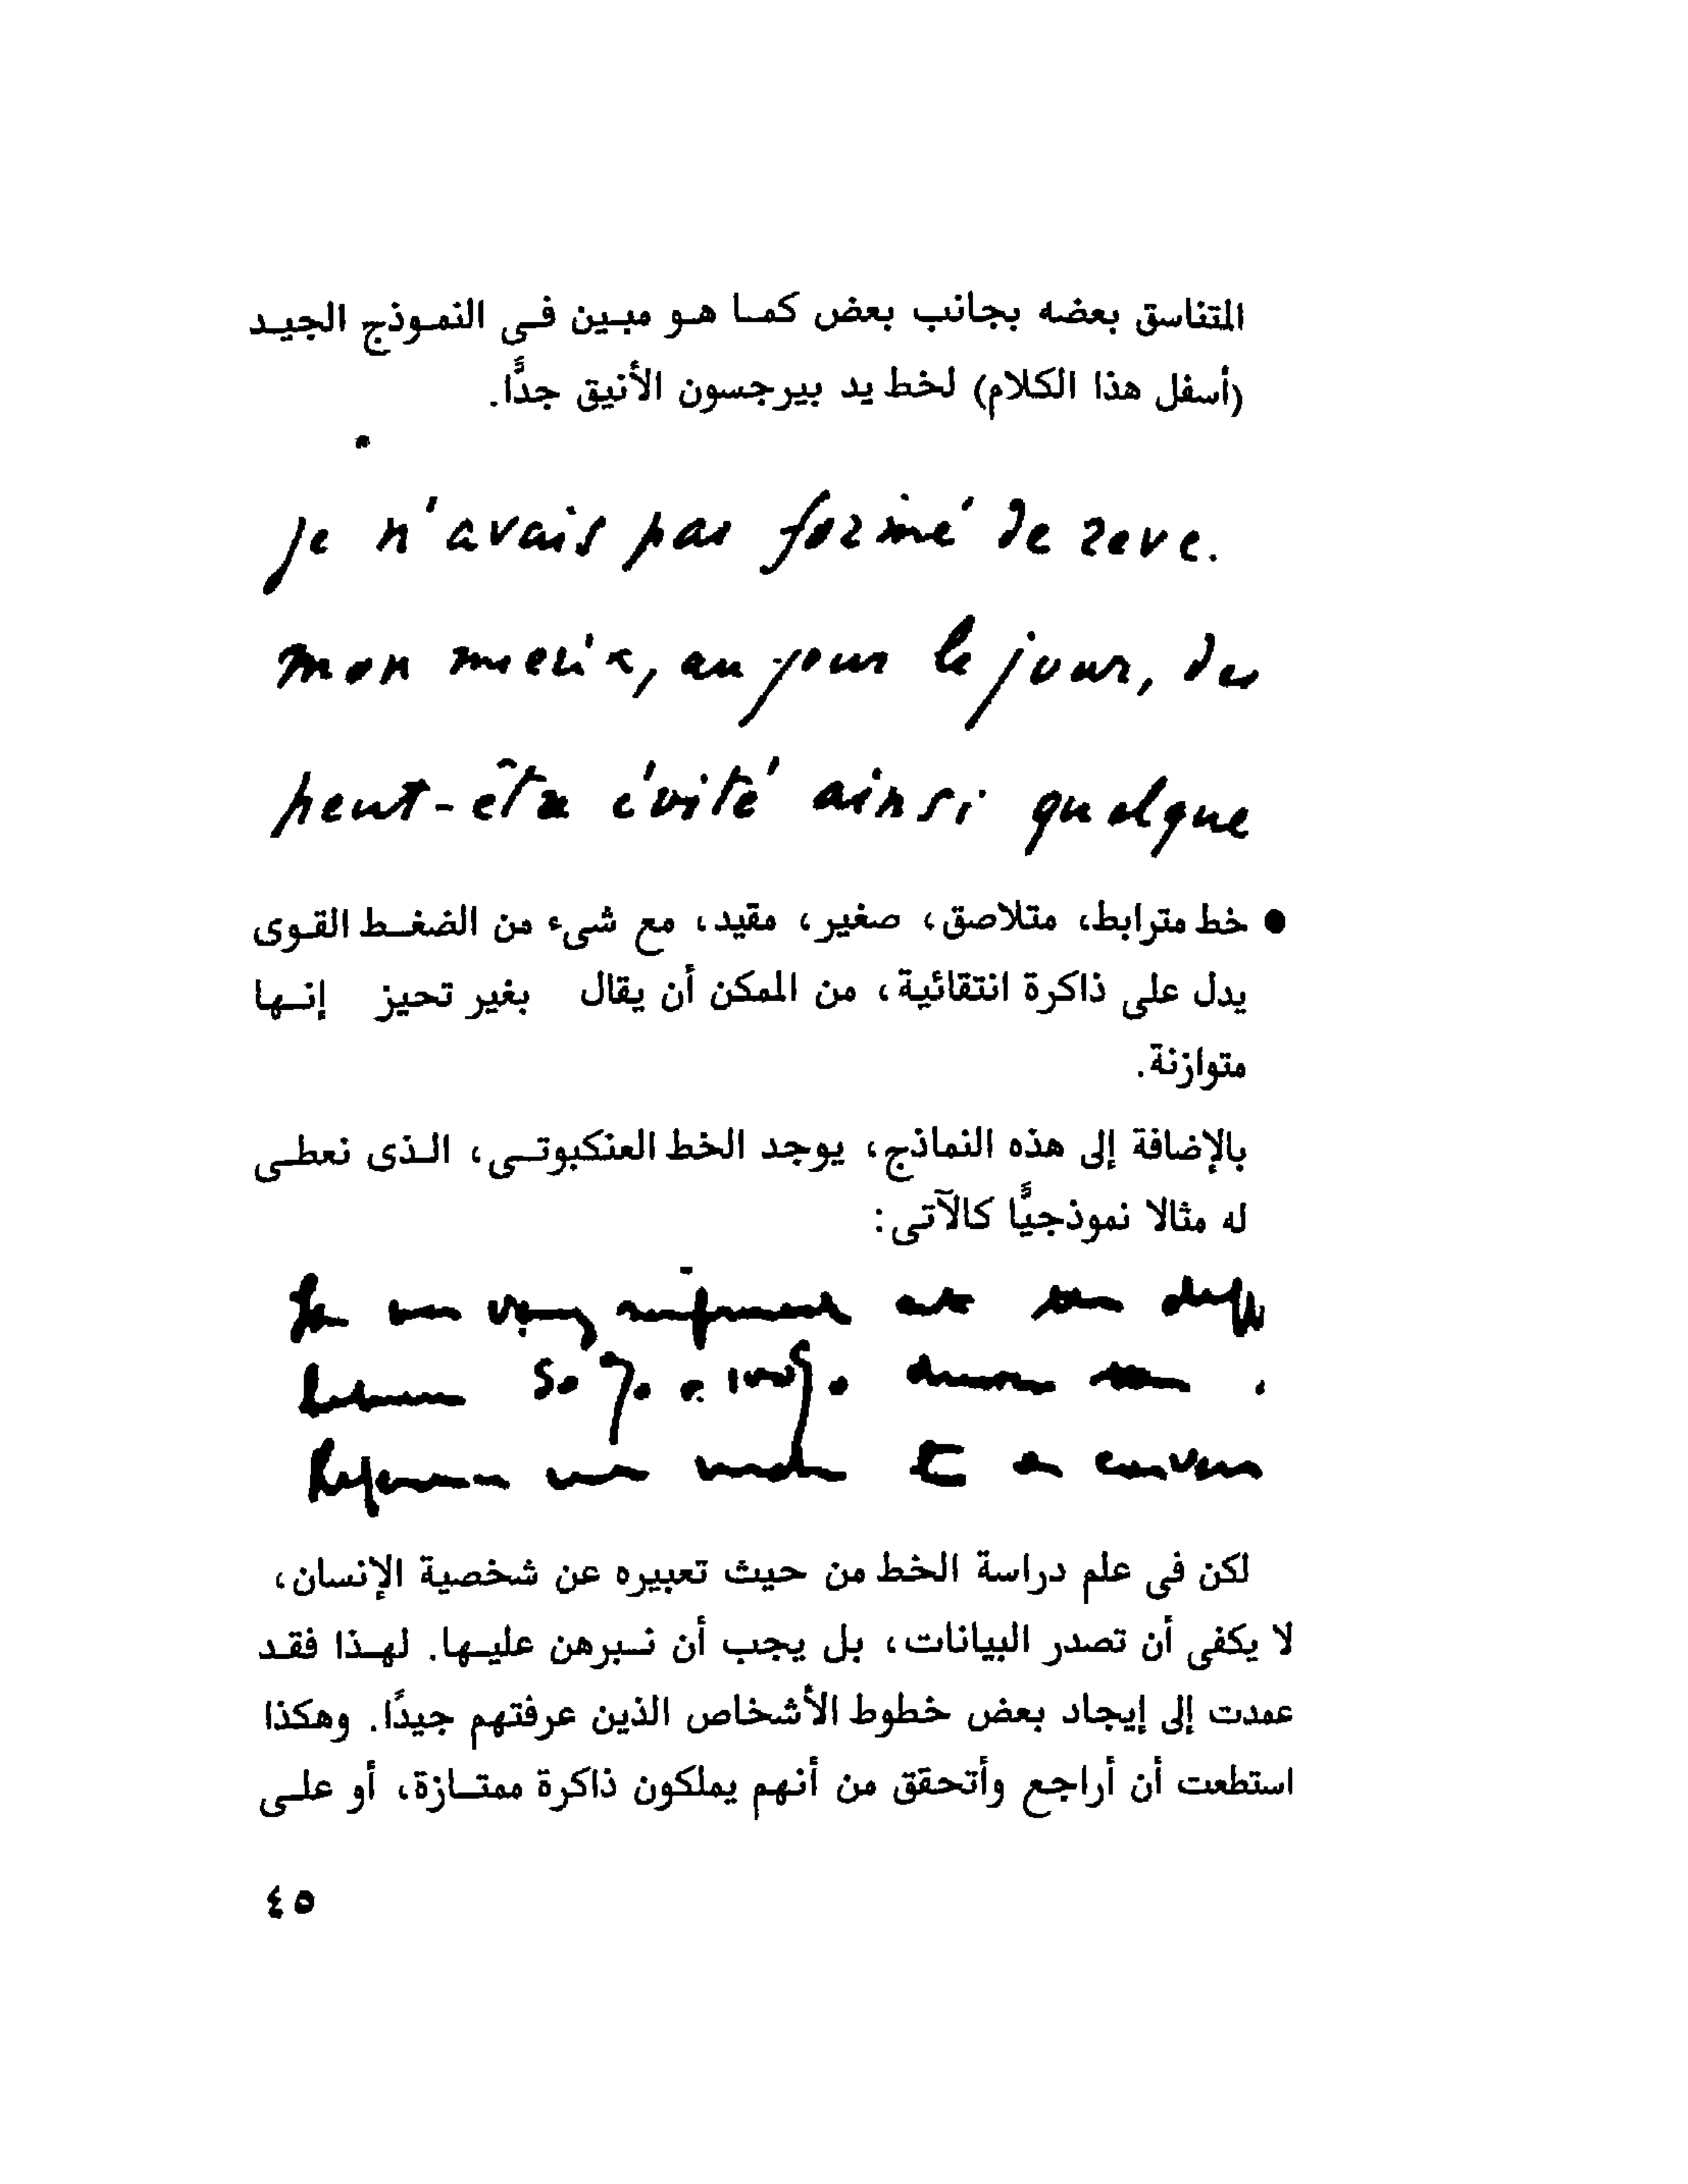 المتناسق بعضه بجانب بعض كما هو مبين فى النموذج الجيد
(أسفل هذا الكلام) لخط يد بيرجسون الأنيق جدًّا.
je n'avais pas formé de reve.
mon mieux, au jour le jour, des
peut-être évité ainsi quelque
● خط مترابط، متلاصق، صغير، مقيد، مع شىء من الضغط القوى
يدل على ذاكرة انتقائية، من الممكن أن يقال بغير تحيز إنها
متوازنة.
بالإضافة إلى هذه النماذج، يوجد الخط العنكبوتى، الذى نعطى
له مثالا نموذجيًّا كالآتى:
50 % 100%
لكن فى علم دراسة الخط من حيث تعبيره عن شخصية الإنسان،
لا يكفى أن تصدر البيانات، بل يجب أن نبرهن عليها. لهذا فقد
عمدت إلى إيجاد بعض خطوط الأشخاص الذين عرفتهم جيدًا. وهكذا
استطعت أن أراجع وأتحقق من أنهم يملكون ذاكرة ممتازة، أو على
٤٥